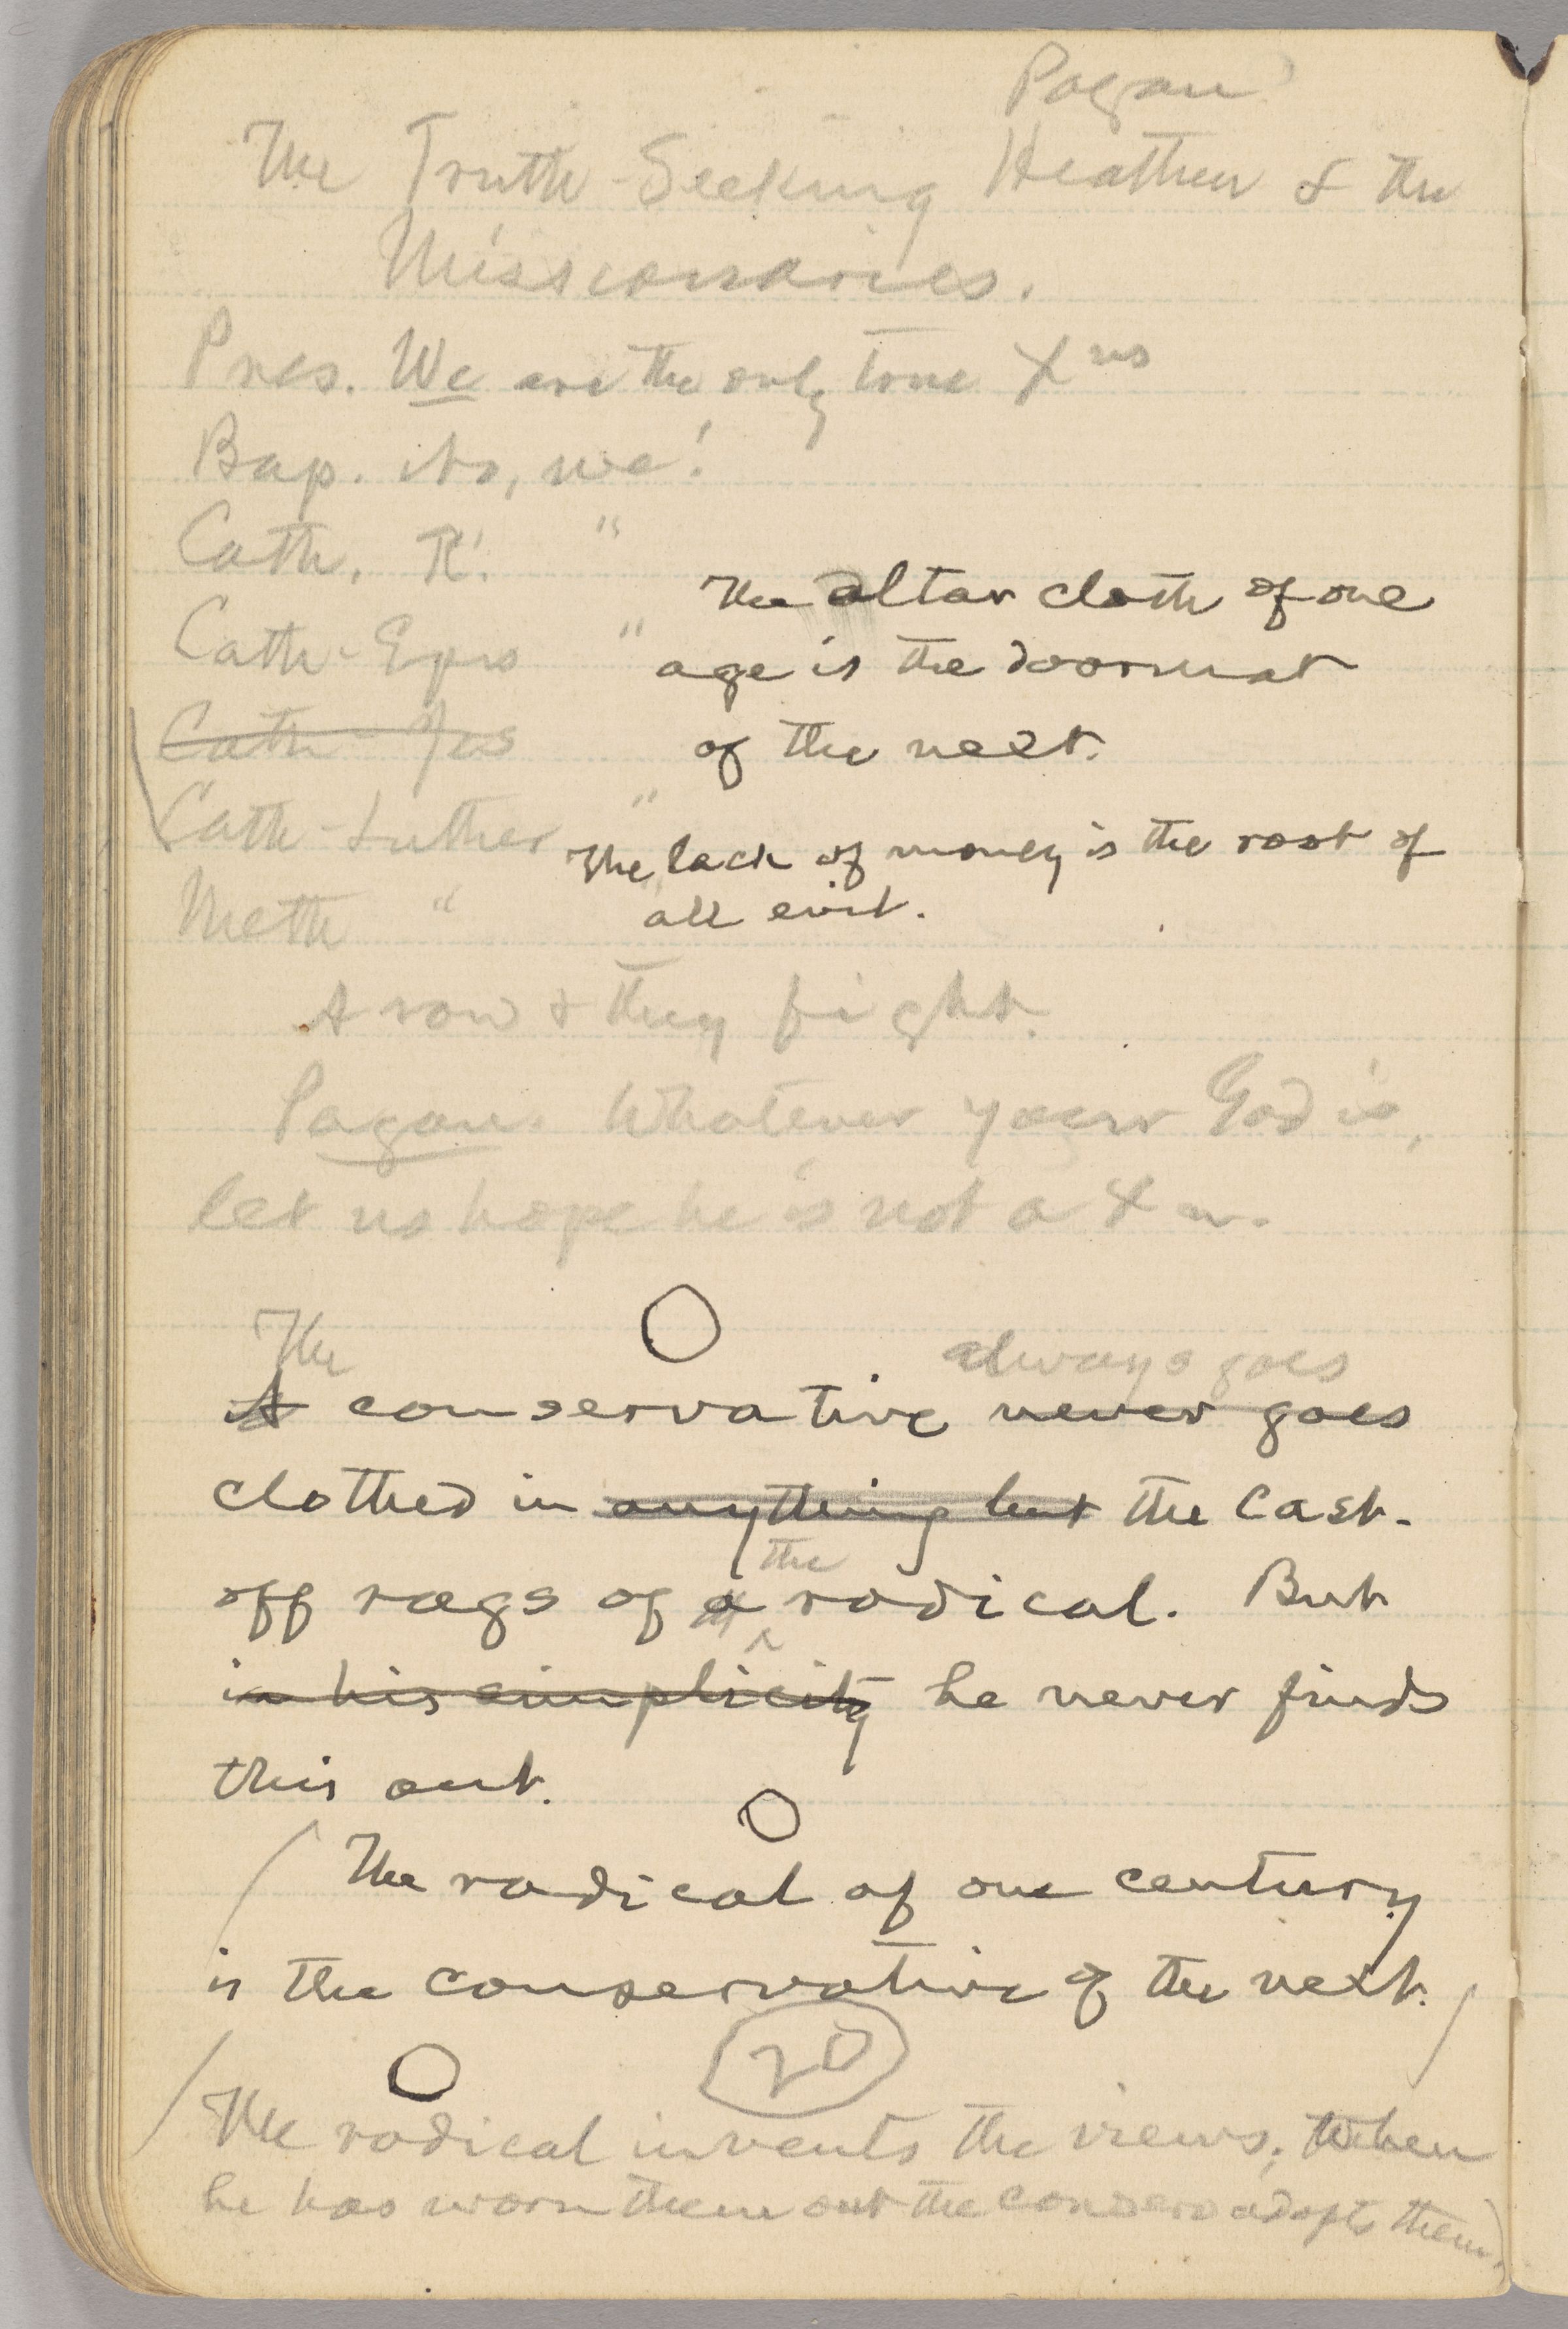 Pagan
The Truth-Seeking Heathen & the
Missionaries.
Pres. We are the only true Xns
Bap. No, we!
Cath. R. "
Cath-Epis "
Cath - Jas
Cath-Luther "
Meth "
The altar cloth of one
age is the doormat
of the next.
The lack of money is the root of
all evil.
A row & they fight.
Pagan. Whatever your God is,
let us hope he is not a Xn.
The always goes
A conservative never goes
clothed in anything but the cast-
the
off rags of a radical. But
in his simplicity he never finds
this out.
The radical of one century
is the conservative of the next.
20
The radical invents the views; When
he has worn them out the conserv adopts them.